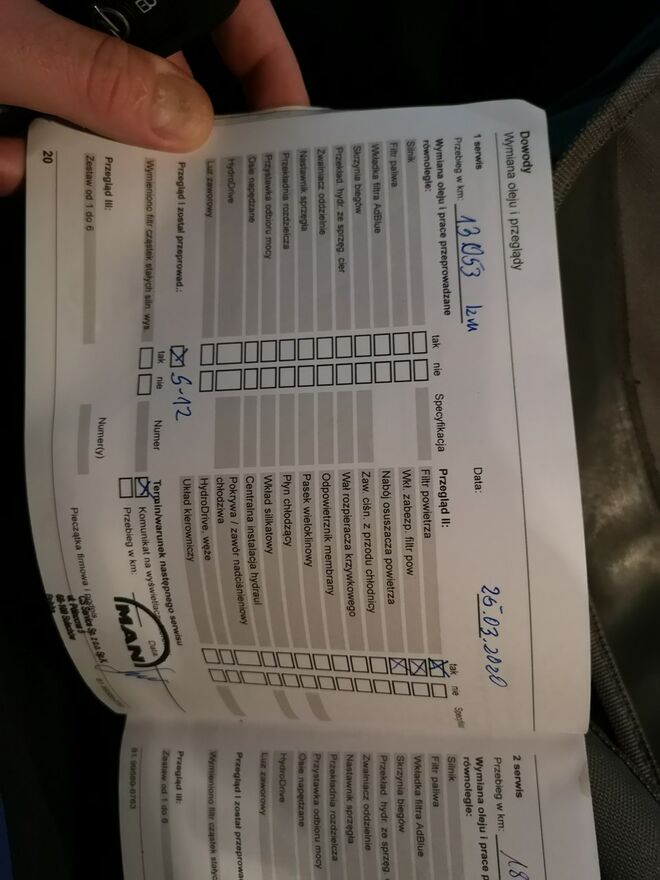 Dowody
Wymiana oleju i przeglądy
1 serwis
Przebieg w km: 13 053 km
Data: 25.03.2020
Wymiana oleju i prace przeprowadzane
równolegle:
tak nie Specyfikacja
Silnik
Filtr paliwa
Wkładka filtra AdBlue
Skrzynia biegów
Przekład. hydr. ze sprzęg. cier
Zwalniacz oddzielnie
Nastawnik sprzęgła
Przekładnia rozdzielcza
Przystawka odboru mocy
Osie napędzane
HydroDrive
Luz zaworowy
Przegląd I został przeprowad.: S-12
tak nie Numer
Wymieniono filtr cząstek stałych siln. wys.
Przegląd III:
Numer(y)
Zestaw od 1 do 6
20
Przegląd II:
tak nie
Filtr powietrza
Wkł. zabezp. filtr pow
Nabój osuszacza powietrza
Zaw. ciśn. z przodu chłodnicy
Wał rozpieracza krzywkowego
Odpowietrznik membrany
Pasek wieloklinowy
Płyn chłodzący
Wkład silikatowy
Centralna instalacja hydraul
Pokrywa / zawór nadciśnieniowy
chłodziwa
HydroDrive, węże
Układ kierowniczy
Termin/warunek następnego serwisu
Komunikat na wyświetlaczu
Przebieg w km:
Data
Pieczątka firmowa i
MAN
2 serwis
Przebieg w km: 18
Wymiana oleju i prace p
równolegle:
Silnik
Filtr paliwa
Wkładka filtra AdBlue
Skrzynia biegów
Przekład. hydr. ze sprzęg.
Zwalniacz oddzielnie
Nastawnik sprzęgła
Przekładnia rozdzielcza
Przystawka odboru mocy
Osie napędzane
HydroDrive
Luz zaworowy
Przegląd I został przeprowad
Wymieniono filtr cząstek stałyc
Przegląd III:
Zestaw od 1 do 6
81.99589-8763